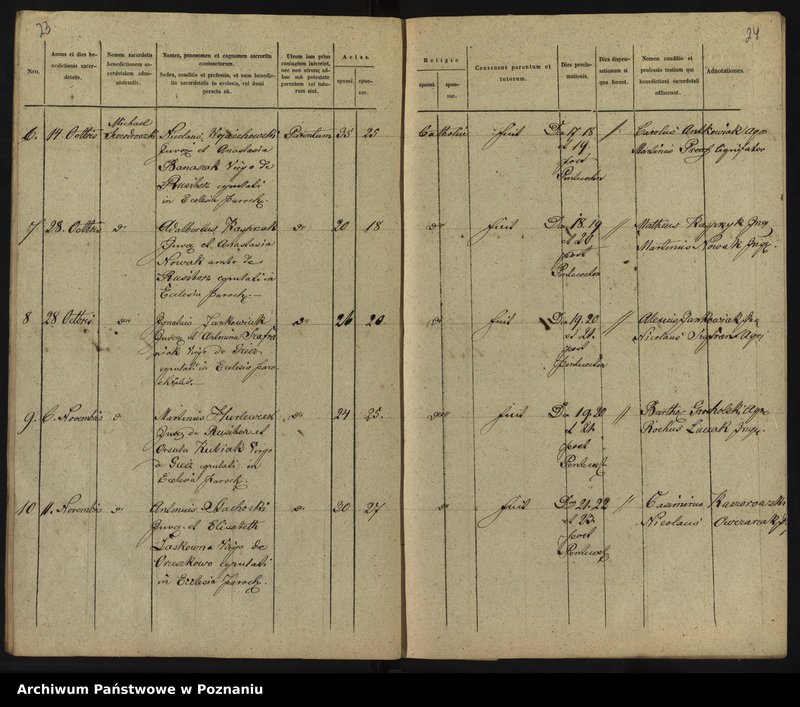 23
24
Nro.
Annus et dies benedictionis sacerdotalis.
Nomen sacerdotis benedictionem sacerdotalem administrantis.
Nomen, praenomen et cognomen sacrorita conjunctorum.
Sedes, conditio et professio, et num benedictio sacerdotalis in ecclesia, vel domi peracta sit.
Utrum iam prius coniugium inierint, nec non utrum adhuc sub potestate parentum vel tutorum sint.
Aetas.
sponsi.
sponsae.
Religio
sponsi.
sponsae.
Consensus parentum et tutorum.
Dies proclamationis.
Dies dispensationum si qua fuerunt.
Nomen conditio et professio testium qui benedictioni sacerdotali adfuerunt.
Adnotationes.
6. 14 Octbris Michael Nicolaus Wojciechowski Parentum 35 25
Juven et Anastasia
Banaszak Virgo de
Rusibor copulati
in Ecclesia Paroch.
Catholici fuit Dca 17. 18
et 19
post
Pentecosten
Carolus Antkowiak Agr
Martinus
7 28. Octbris do Adalbertus Kasprzak do 20 18
Juven et Anastasia
Nowak ambo de
Rusibor copulati in
Ecclesia Paroch.
do fuit Dca 18. 19
et 20
post
Pentecosten
Mathias Kasprzyk Inq
Martinus Nowak Inq.
8 28 Octbris do Ignatius Jankowiak do 26 20
Juven et Antonina
Virgo de Giecz
copulati in Ecclesia Paro
chialis.
do fuit Dca 19. 20
et 21.
post
Pentecosten
Alexius Jankowiak
Nicolaus Agri
9. 6. Novembris do Martinus do 24 25.
Juven de Rusibor et
Ursula Kubiak Virgo
de Giecz copulati in
Ecclesia Paroch.
do fuit Dca 19. 20
et 21.
post
Pentecost
Barth. Grocholski Agr
Rochus Luczak Inq.
10 11. Novembris do Antonius do 30 27
Juven et Elisabeth
Laskowna Virgo de
Orzeszkowo copulati
in Ecclesia Paroch.
do fuit Dca 21. 22
et 23.
post
Pentecost
Casimirus
Nicolaus Owczarzak
Archiwum Państwowe w Poznaniu